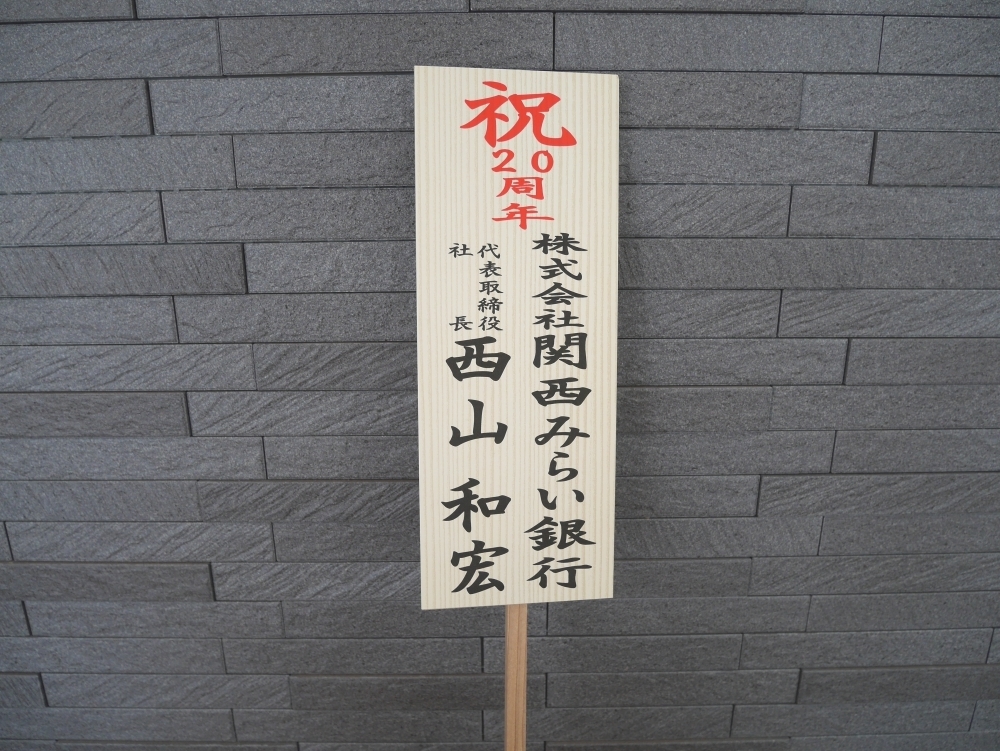 祝
20
周
年
株式会社関西みらい銀行
代表取締役
社長
西山和宏